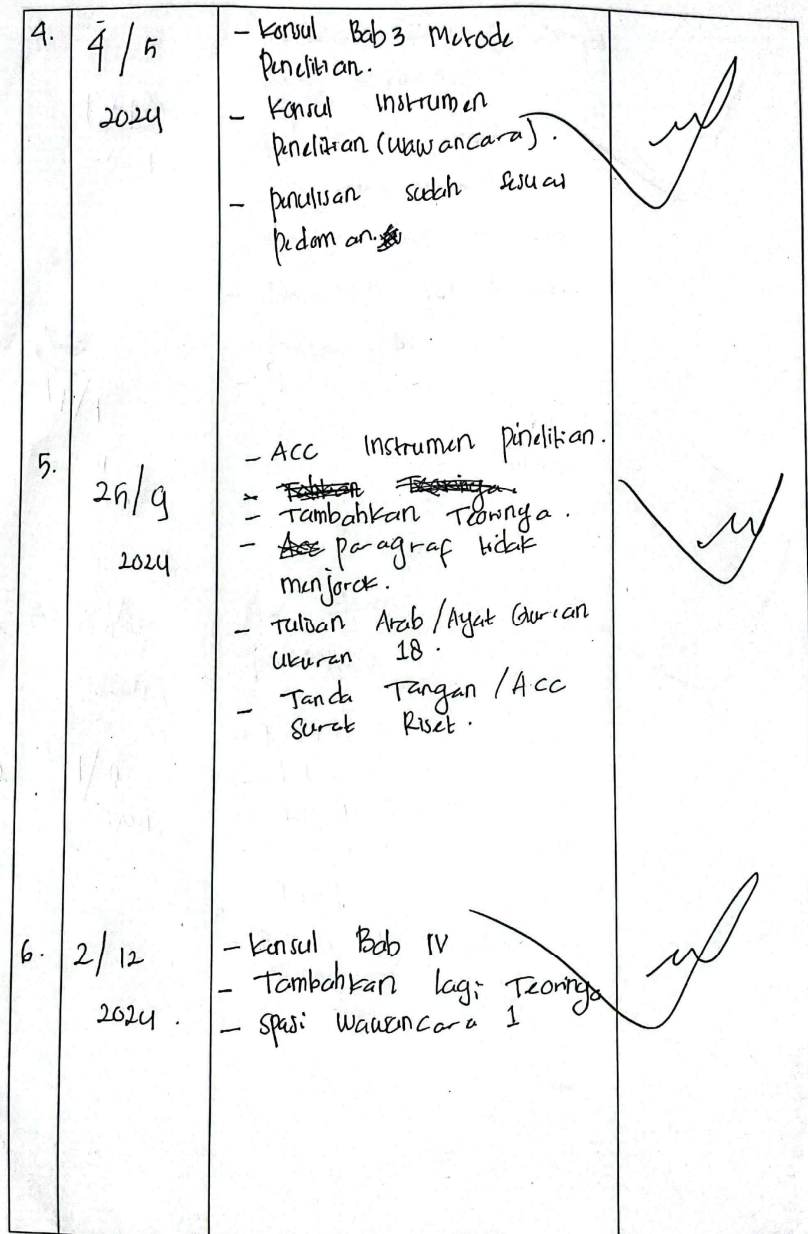 4. 4/5 - Konsul Bab 3 Metode
Penelitian.
2024 - Konsul Instrumen
Penelitian (wawancara).
- penulisan sudah sesuai
pedoman.
5. 25/9 - ACC Instrumen penelitian.
- Tambahkan Teorinya.
2024 - paragraf tidak
menjorok.
- Tulisan Arab/Ayat Qur'an
Ukuran 18.
- Tanda Tangan/Acc
Surat Riset.
6. 2/12 - Konsul Bab IV
- Tambahkan lagi Teorinya
2024. - Spasi Wawancara 1